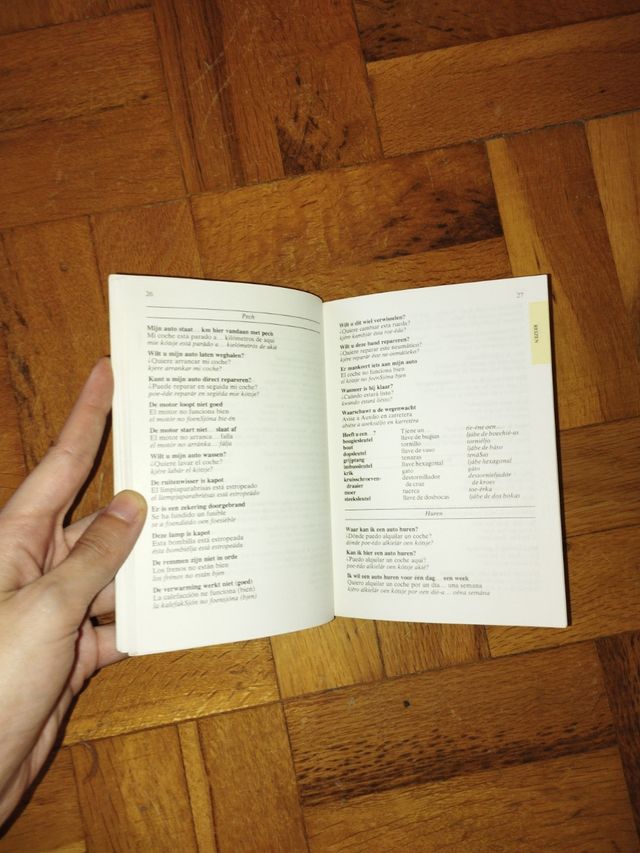 26
Pech
Mijn auto staat... km hier vandaan met pech
Mi coche está parado a... kilómetros de aquí
mie kótsje está parádo a... kielómetros de akíé
Wilt u mijn auto laten weghalen?
¿Quiere arrancar mi coche?
kjére arrankar mi coche?
Kant u mijn auto direct repareren?
¿Puede reparar en seguida mi coche?
poe-éde reparár en segiéda mie kótsje?
De motor loopt niet goed
El motor no funciona bien
el motór no foenSjóna bie-en
De motor start niet... slaat af
El motor no arranca... falla
el motór no arránka... fálja
Wilt u mijn auto wassen?
¿Quiere lavar el coche?
kjére labár el kótsje?
De ruitenwisser is kapot
El limpiaparabrisas está estropeado
el liempjaparabriésas está estropeádo
Er is een zekering doorgebrand
Se ha fundido un fusible
se a foendiédo oen foesiéble
Deze lamp is kapot
Esta bombilla está estropeada
ésta bombiélja está estropeáda
De remmen zijn niet in orde
Los frenos no están bien
los frénos no están bjen
De verwarming werkt niet (goed)
La calefacción ne funciona (bien)
la kalefakSjón no foensjóna (bjen)
27
REIZEN
Wilt u dit wiel verwisselen?
¿Quiere cambiar esta rueda?
kjére kambjiár ésta roe-éda?
Wilt u deze band repareren?
¿Quiere reparar este neumático?
kjére reparár éste ne-oemátieko?
Er mankeert iets aan mijn auto
El coche no funciona bien
el kótsje no foenSjóna bjen
Wanneer is hij klaar?
¿Cuándo estará listo?
kwándo estará liésto?
Waarschuwt u de wegenwacht
Avise a Auxilio en carretera
abiése a auksieljo en karretéra
Heeft u een ..? Tiene un... tie-éne oen...
bougiesleutel llave de bujías ljábe de boechié-as
bout tornillo torniéljo
dopsleutel llave de vaso ljábe de báso
grijptang tenazas tenáSas
imbussleutel llave hexagonal ljábe hexagonal
krik gato gáto
kruisschroeven- destornillador destornieljadór
draaier de cruz de kroes
moer tuerca toe-érka
steeksleutel llave de dosbocas ljábe de dos bokas
Huren
Waar kan ik een auto huren?
¿Dónde puedo alquilar un coche?
dónde poe-édo alkielár oen kótsje?
Kan ik hier een auto huren?
¿Puedo alquilar un coche aquí?
poe-édo alkielár oen kótsje akié?
Ik wil een auto huren voor één dag... een week
Quiero alquilar un coche por un día... una semana
kjéro alkielár oen kótsje por oen dié-a... oéna semána